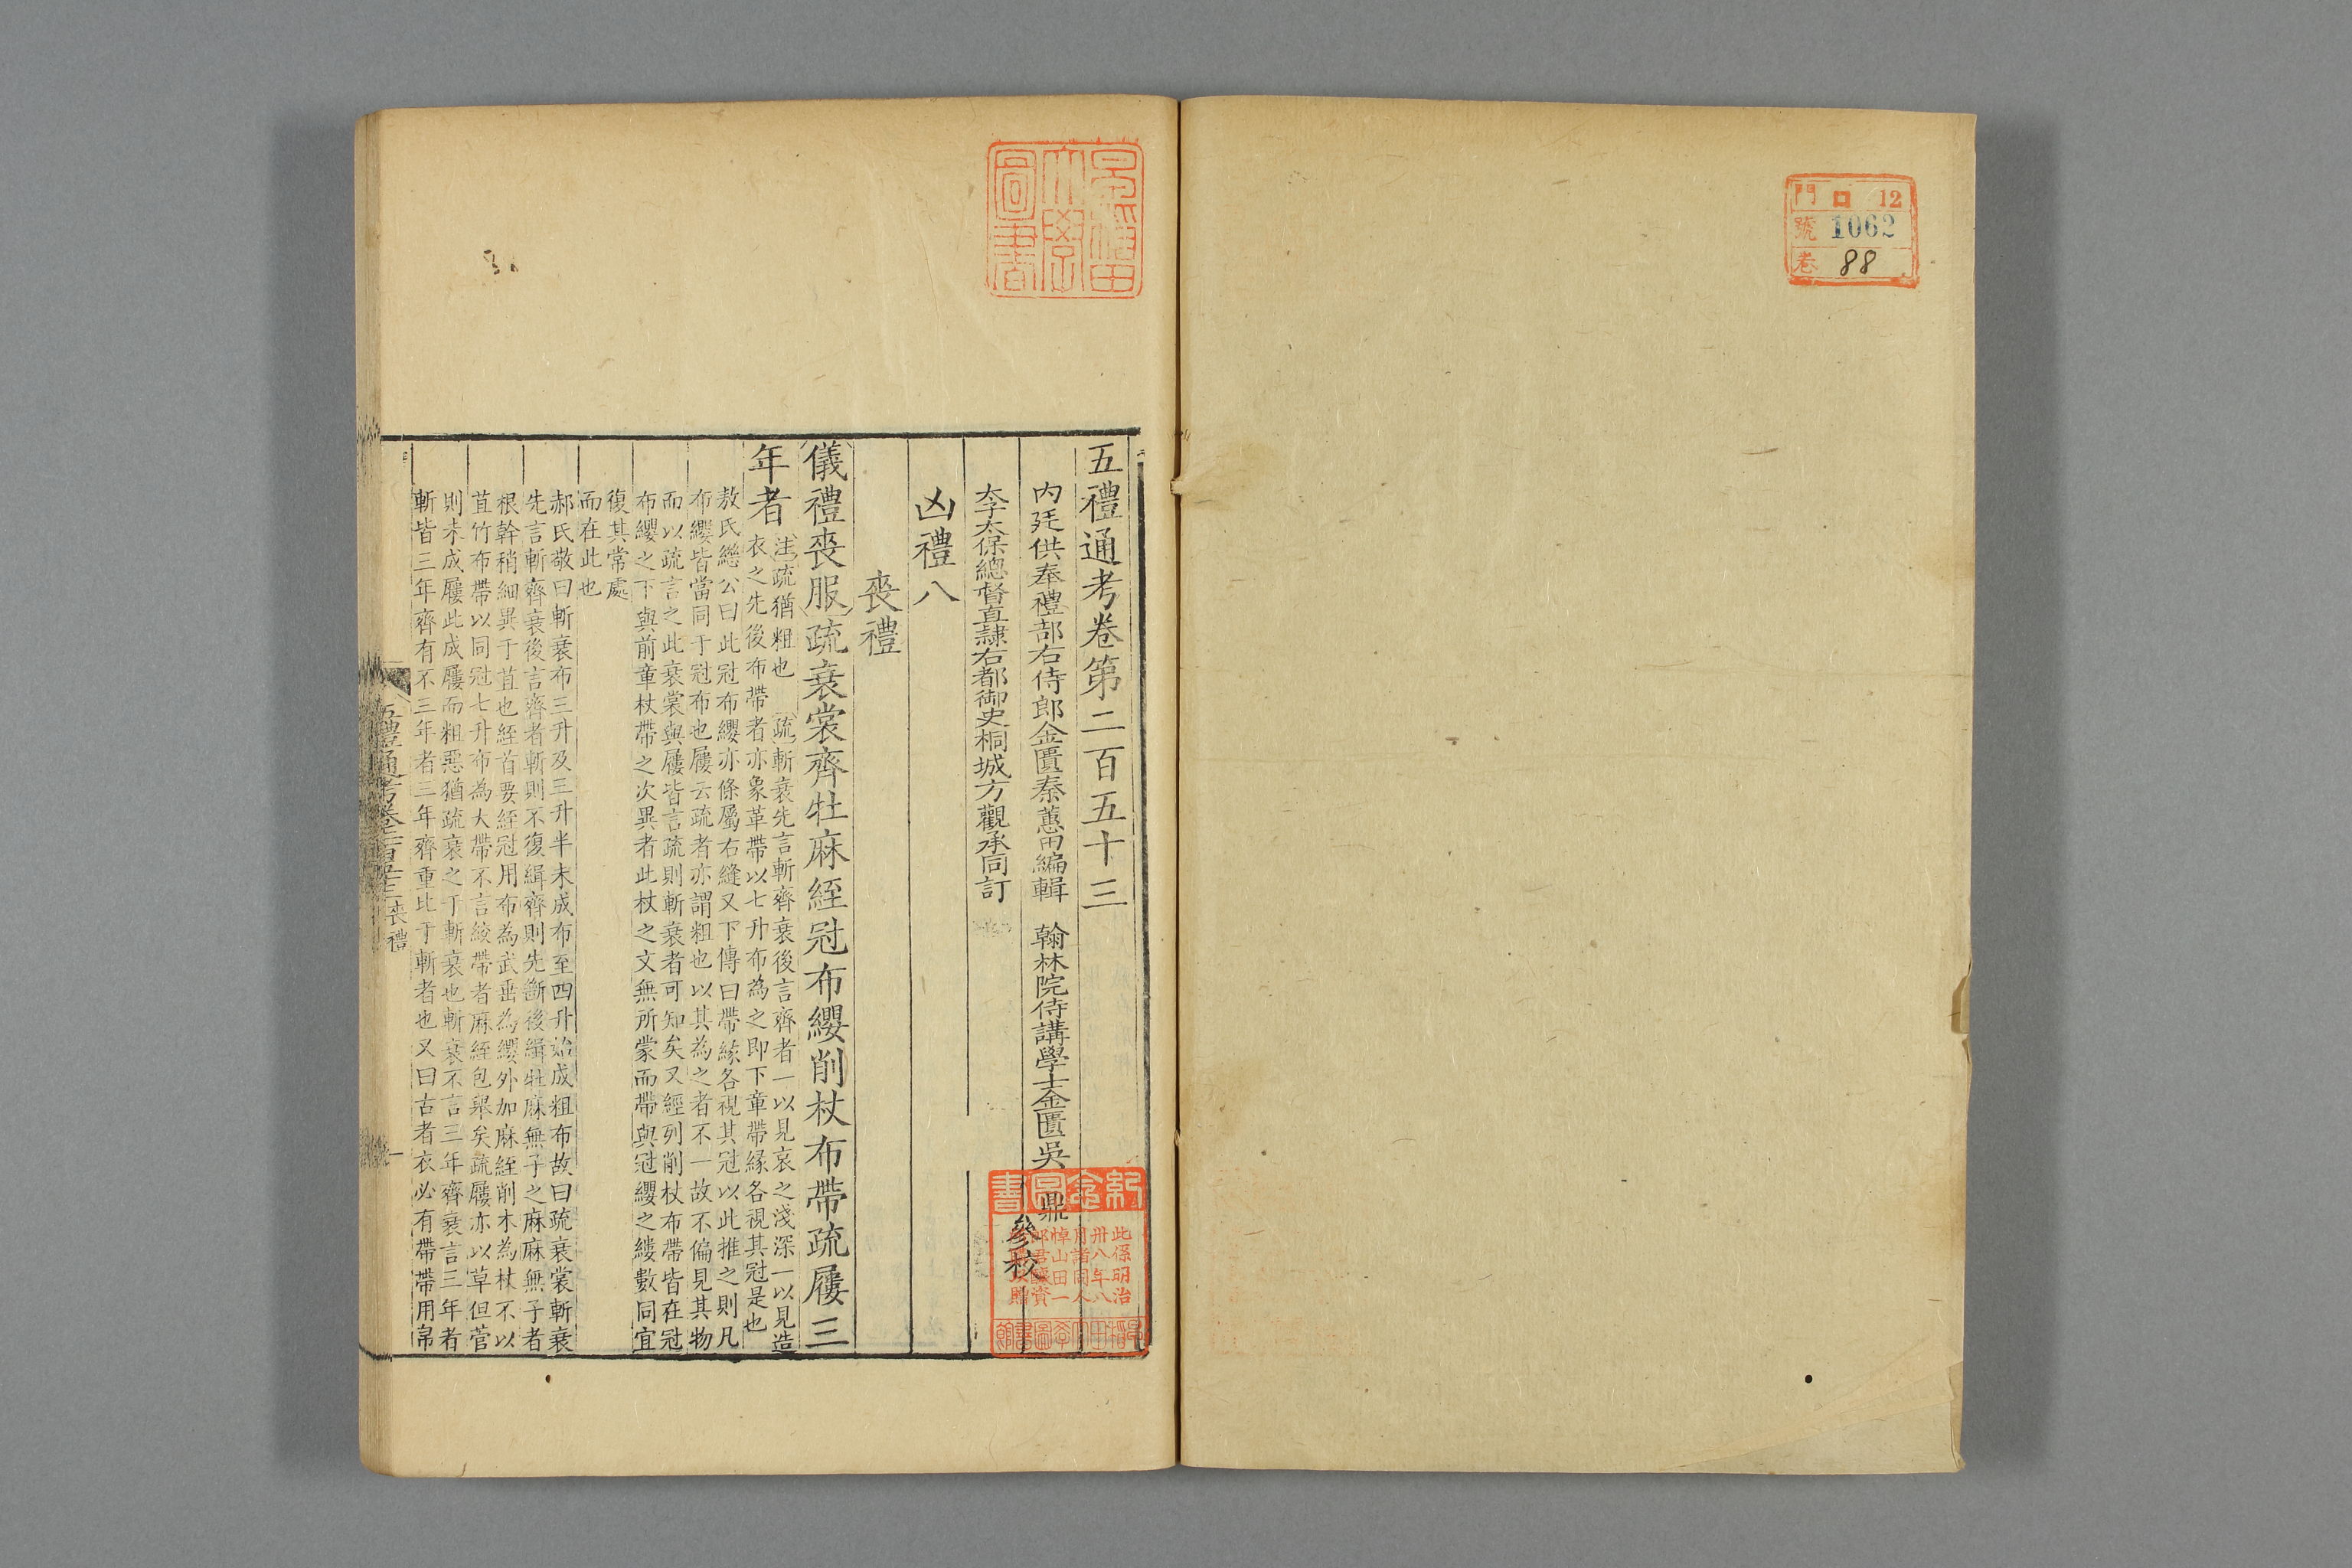 門 口 12
號 1062
卷 88
早稲田大學圖書
五禮通考卷第二百五十三
内廷供奉禮部右侍郎金匱秦蕙田編輯 翰林院侍講學士金匱吳 鼎
參校
太子太保總督直隷右都御史桐城方觀承同訂
凶禮八
喪禮
儀禮喪服疏衰裳齊牡麻絰冠布纓削杖布帶疏屨三
年者
注疏猶粗也 疏斬衰先言斬齊衰後言齊者一以見哀之淺深一以見造
衣之先後布帶者亦象革帶以七升布為之即下章帶緣各視其冠是也
敖氏繼公曰此冠布纓亦條屬右縫又下傳曰帶緣各視其冠以此推之則凡
布纓皆當同于冠布也屨云疏者亦謂粗也以其為之者不一故不偏見其物
而以疏言之此衰裳與屨皆言疏則斬衰者可知矣又經列削杖布帶皆在冠
布纓之下與前章杖帶之次異者此杖之文無所蒙而帶與冠纓之縷數同宜
復其常處
而在此也
郝氏敬曰斬衰布三升及三升半未成布至四升始成粗布故曰疏衰裳斬衰
先言斬齊衰後言齊者斬則不復緝齊則先斷後緝牡麻無子之麻麻無子者
根幹稍細異于苴也絰首要絰冠用布為武垂為纓外加麻絰削木為杖不以
苴竹布帶以同冠七升布為大帶不言絞帶者麻絰包舉矣疏屨亦以草但菅
則未成屨此成屨而粗惡猶疏衰之于斬衰也斬衰不言三年齊衰言三年者
斬皆三年齊有不三年者三年齊重比于斬者也又曰古者衣必有帶帶用帛
五禮通考卷二百五十三 喪禮 一
紀念圖書
此係明治
卅八年八
月諸同人
悼山田一
郎君醵資
早稲田大學圖書館